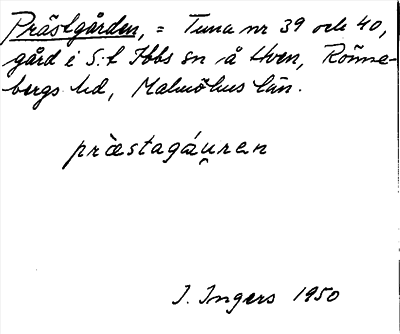 Prästgården, = Tuna nr 39 och 40,
gård i S:t Ibbs sn å Hven, Rönne-
bergs hd, Malmöhus län.
prästagáu̯ren
I. Ingers 1950